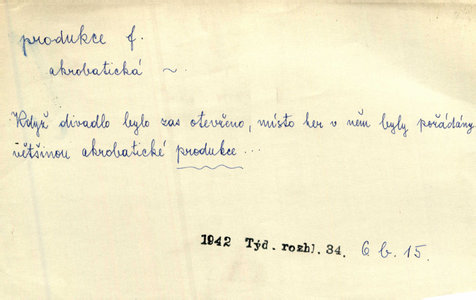 produkce f.
akrobatická ~
Když divadlo bylo zas otevřeno, místo her v něm byly pořádány
většinou akrobatické produkce ...
1942 Týd. rozhl. 34. 6 b. 15.